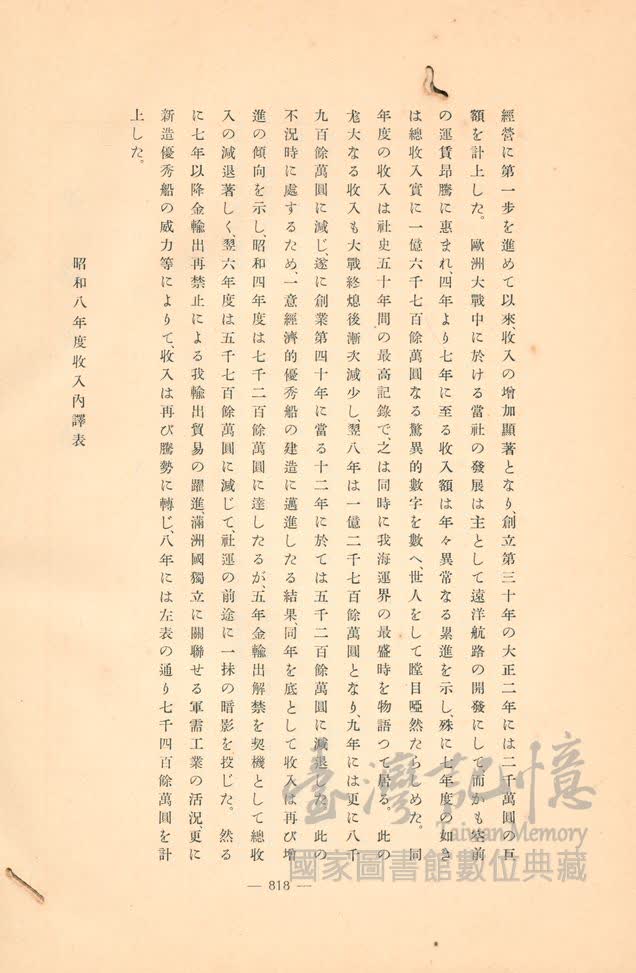 經營に第一步を進めて以來、收入の增加顯著となり、創立第三十年の大正二年には二千萬圓の巨
額を計上した。歐洲大戰中に於ける當社の發展は主として遠洋航路の開發にして而かも空前
の運賃昂騰に惠まれ、四年より七年に至る收入額は年々異常なる累進を示し、殊に七年度の如き
は總收入實に一億六千七百餘萬圓なる驚異的數字を數へ、世人をして瞠目啞然たらしめた。同
年度の收入は社史五十年間の最高記錄で、之は同時に我海運界の最盛時を物語つて居る。此の
尨大なる收入も大戰終熄後漸次減少し、翌八年は一億二千七百餘萬圓となり、九年には更に八千
九百餘萬圓に減じ、遂に創業第四十年に當る十二年に於ては五千二百餘萬圓に減退した。此の
不況時に處するため、一意經濟的優秀船の建造に邁進したる結果、同年を底として收入は再び增
進の傾向を示し、昭和四年度は七千二百餘萬圓に達したるが、五年金輸出解禁を契機として總收
入の減退著しく、翌六年度は五千七百餘萬圓に減じて、社運の前途に一抹の暗影を投じた。然る
に七年以降金輸出再禁止による我輸出貿易の躍進、滿洲國獨立に關聯せる軍需工業の活況、更に
新造優秀船の威力等によりて、收入は再び騰勢に轉じ、八年には左表の通り七千四百餘萬圓を計
上した。
昭和八年度收入內譯表
— 818 —
臺灣記憶
Taiwan Memory
國家圖書館數位典藏